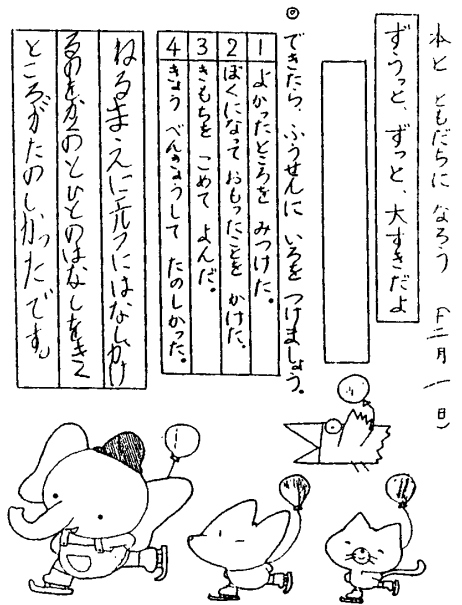 本と ともだちに なろう (十二月 一日)
ずうっと、ずっと、大すきだよ
◎ できたら、ふうせんに いろを つけましょう。
1 よかったところを みつけた。
2 ぼくになって おもったことを かけた。
3 きもちを こめて よんだ。
4 きょう べんきょうして たのしかった。
ねるまえにエルフにはなしかけ
るのをかくのとひとのはなしをきく
ところがたのしかったです。